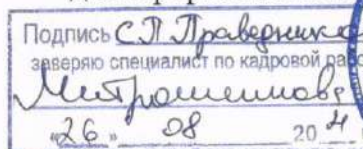 Подпись С.П. Праведнико
заверяю специалист по кадровой рабо
Митрошенкова
"26" 08 20